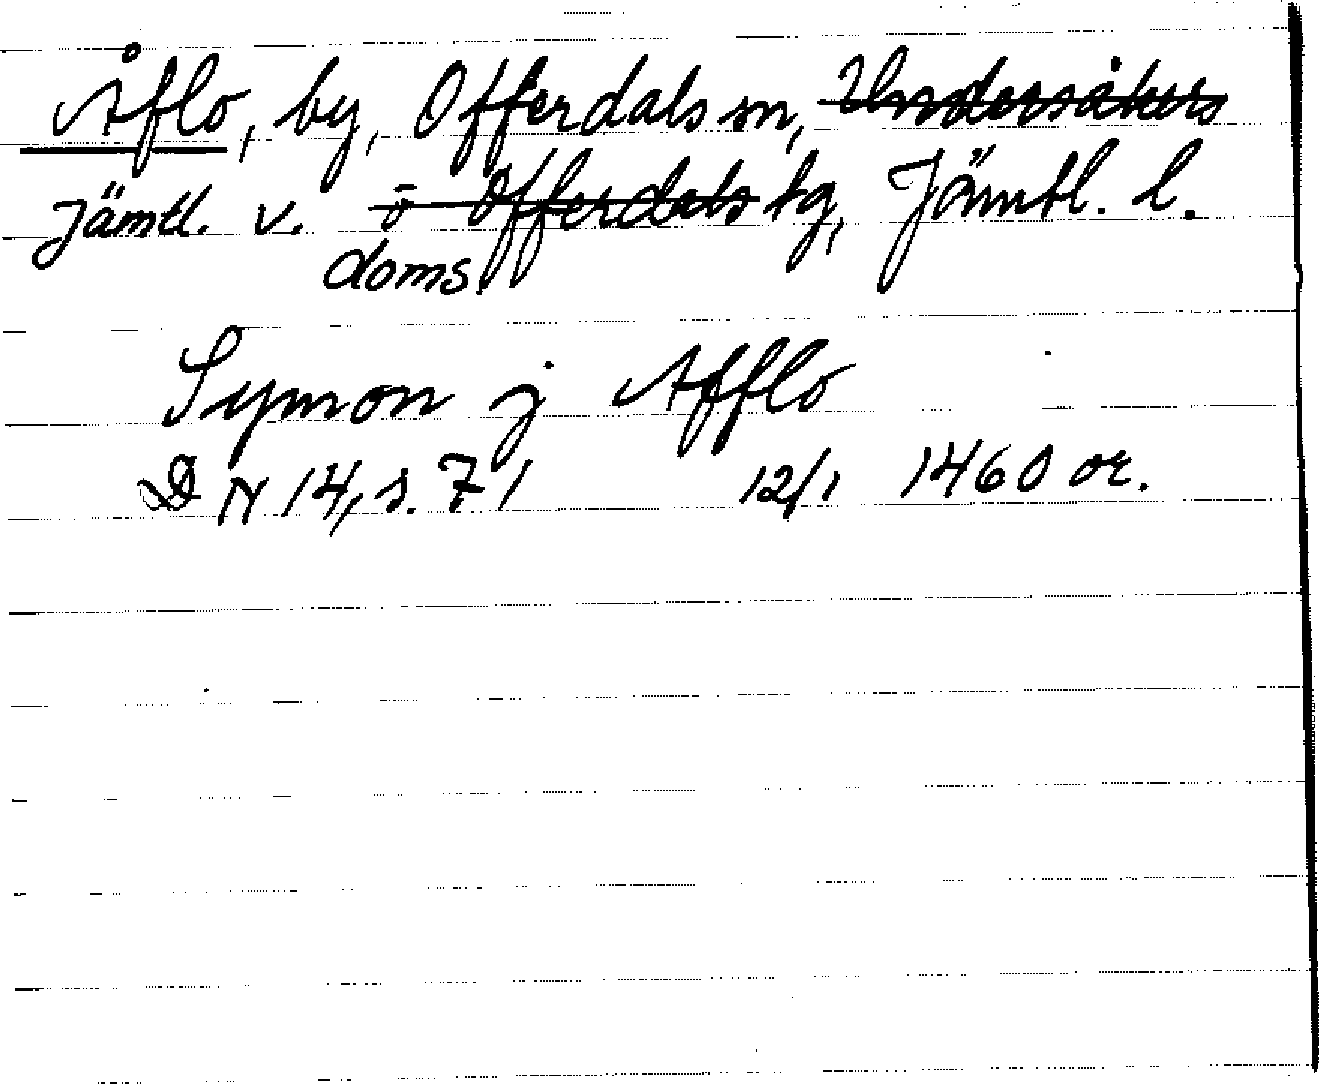 Åflo, by, Offerdals sn, Undersåkers
Jämtl. v. o Offerdals tg, Jämtl. l.
doms.
Symon j Afflo
DN 14, s. 71 12/1 1460 or.